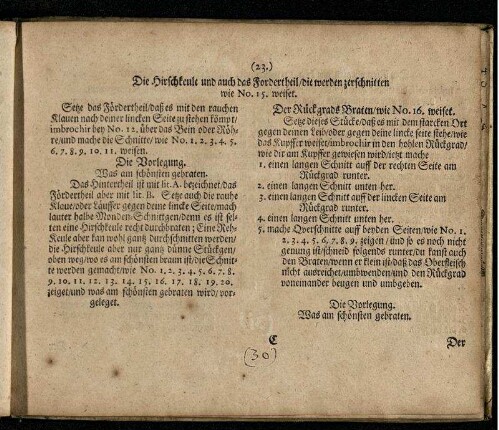 (23.)
Die Hirschkeule und auch das Fordertheil/die werden zerschnitten
wie No. 15. weiset.
Setze das Fördertheil/daß es mit den rauchen
Klauen nach deiner lincken Seite zu stehen kömpt/
imbrochir bey No. 12. über das Bein oder Röh-
re/und mache die Schnitte/wie No. 1. 2. 3. 4. 5.
6. 7. 8. 9. 10. 11. weisen.
Die Vorlegung.
Was am schönsten gebraten.
Das Hintertheil ist mit lit. A. bezeichnet/das
Fördertheil aber mit lit. B. Setze auch die rauhe
Klaue/oder Läuffer gegen deine lincke Seite/mach
lauter halbe Monden-Schnitgen/denn es ist sel-
ten eine Hirschkeule recht durchbraten; Eine Reh-
Keule aber kan wohl gantz durchschnitten werden/
die Hirschkeule aber nur gantz dünne Stückgen/
oben weg/wo es am schönsten braun ist/die Schnit-
te werden gemacht/wie No. 1. 2. 3. 4. 5. 6. 7. 8.
9. 10. 11. 12. 13. 14. 15. 16. 17. 18. 19. 20.
zeiget/und was am schönsten gebraten wird/vor-
geleget.
Der Rückgrads Braten/wie No. 16. weiset.
Setze dieses Stücke/daß es mit dem starcken Ort
gegen deinen Leib/oder gegen deine lincke seite stehe/wie
das Kupffer weiset/imbrochir in den hohlen Rückgrad/
wie dir am Kupffer gewiesen wird/jetzt mache
1. einen langen Schnitt auff der rechten Seite am
Rückgrad runter.
2. einen langen Schnitt unten her.
3. einen langen Schnitt auff der lincken Seite am
Rückgrad runter.
4. einen langen Schnitt unten her.
5. mache Overschnitte auff beyden Seiten/wie No. 1.
2. 3. 4. 5. 6. 7. 8. 9. zeigen/und so es noch nicht
genung ist/schneid folgends runter/du kanst auch
den Braten/wenn er klein ist/daß das Oberfleisch
nicht ausreichet/umbwenden/und den Rückgrad
voneinander beugen und umbgeben.
Die Vorlegung.
Was am schönsten gebraten.
C
Der
(30)